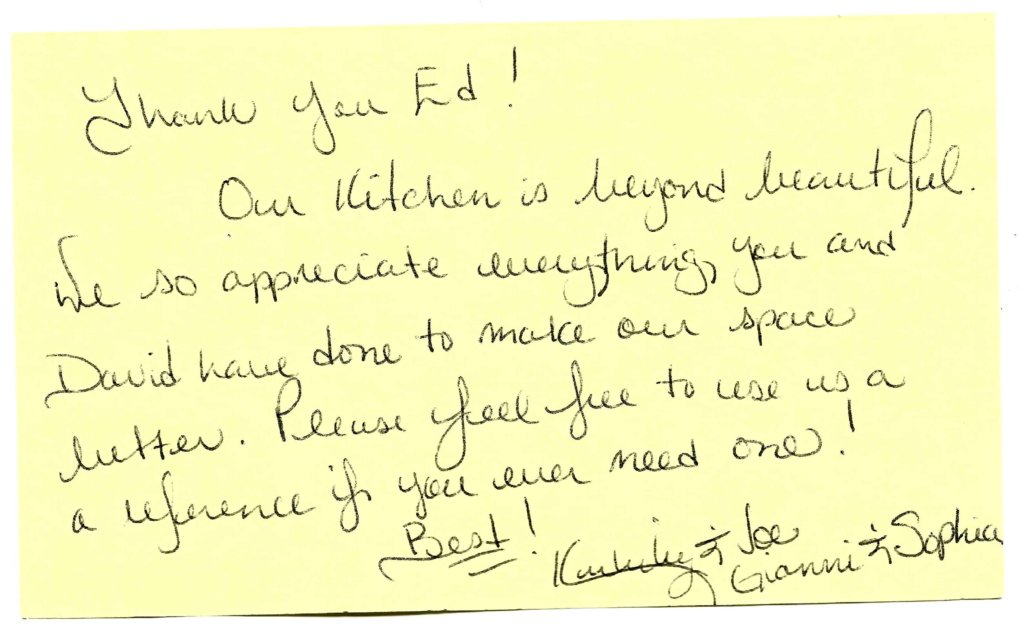 Thank you Ed!
Our Kitchen is beyond beautiful.
We so appreciate everything, you and
David have done to make our space
better. Please feel free to use us a
a reference if you ever need one!
Best! & Joe
Gianni & Sophia